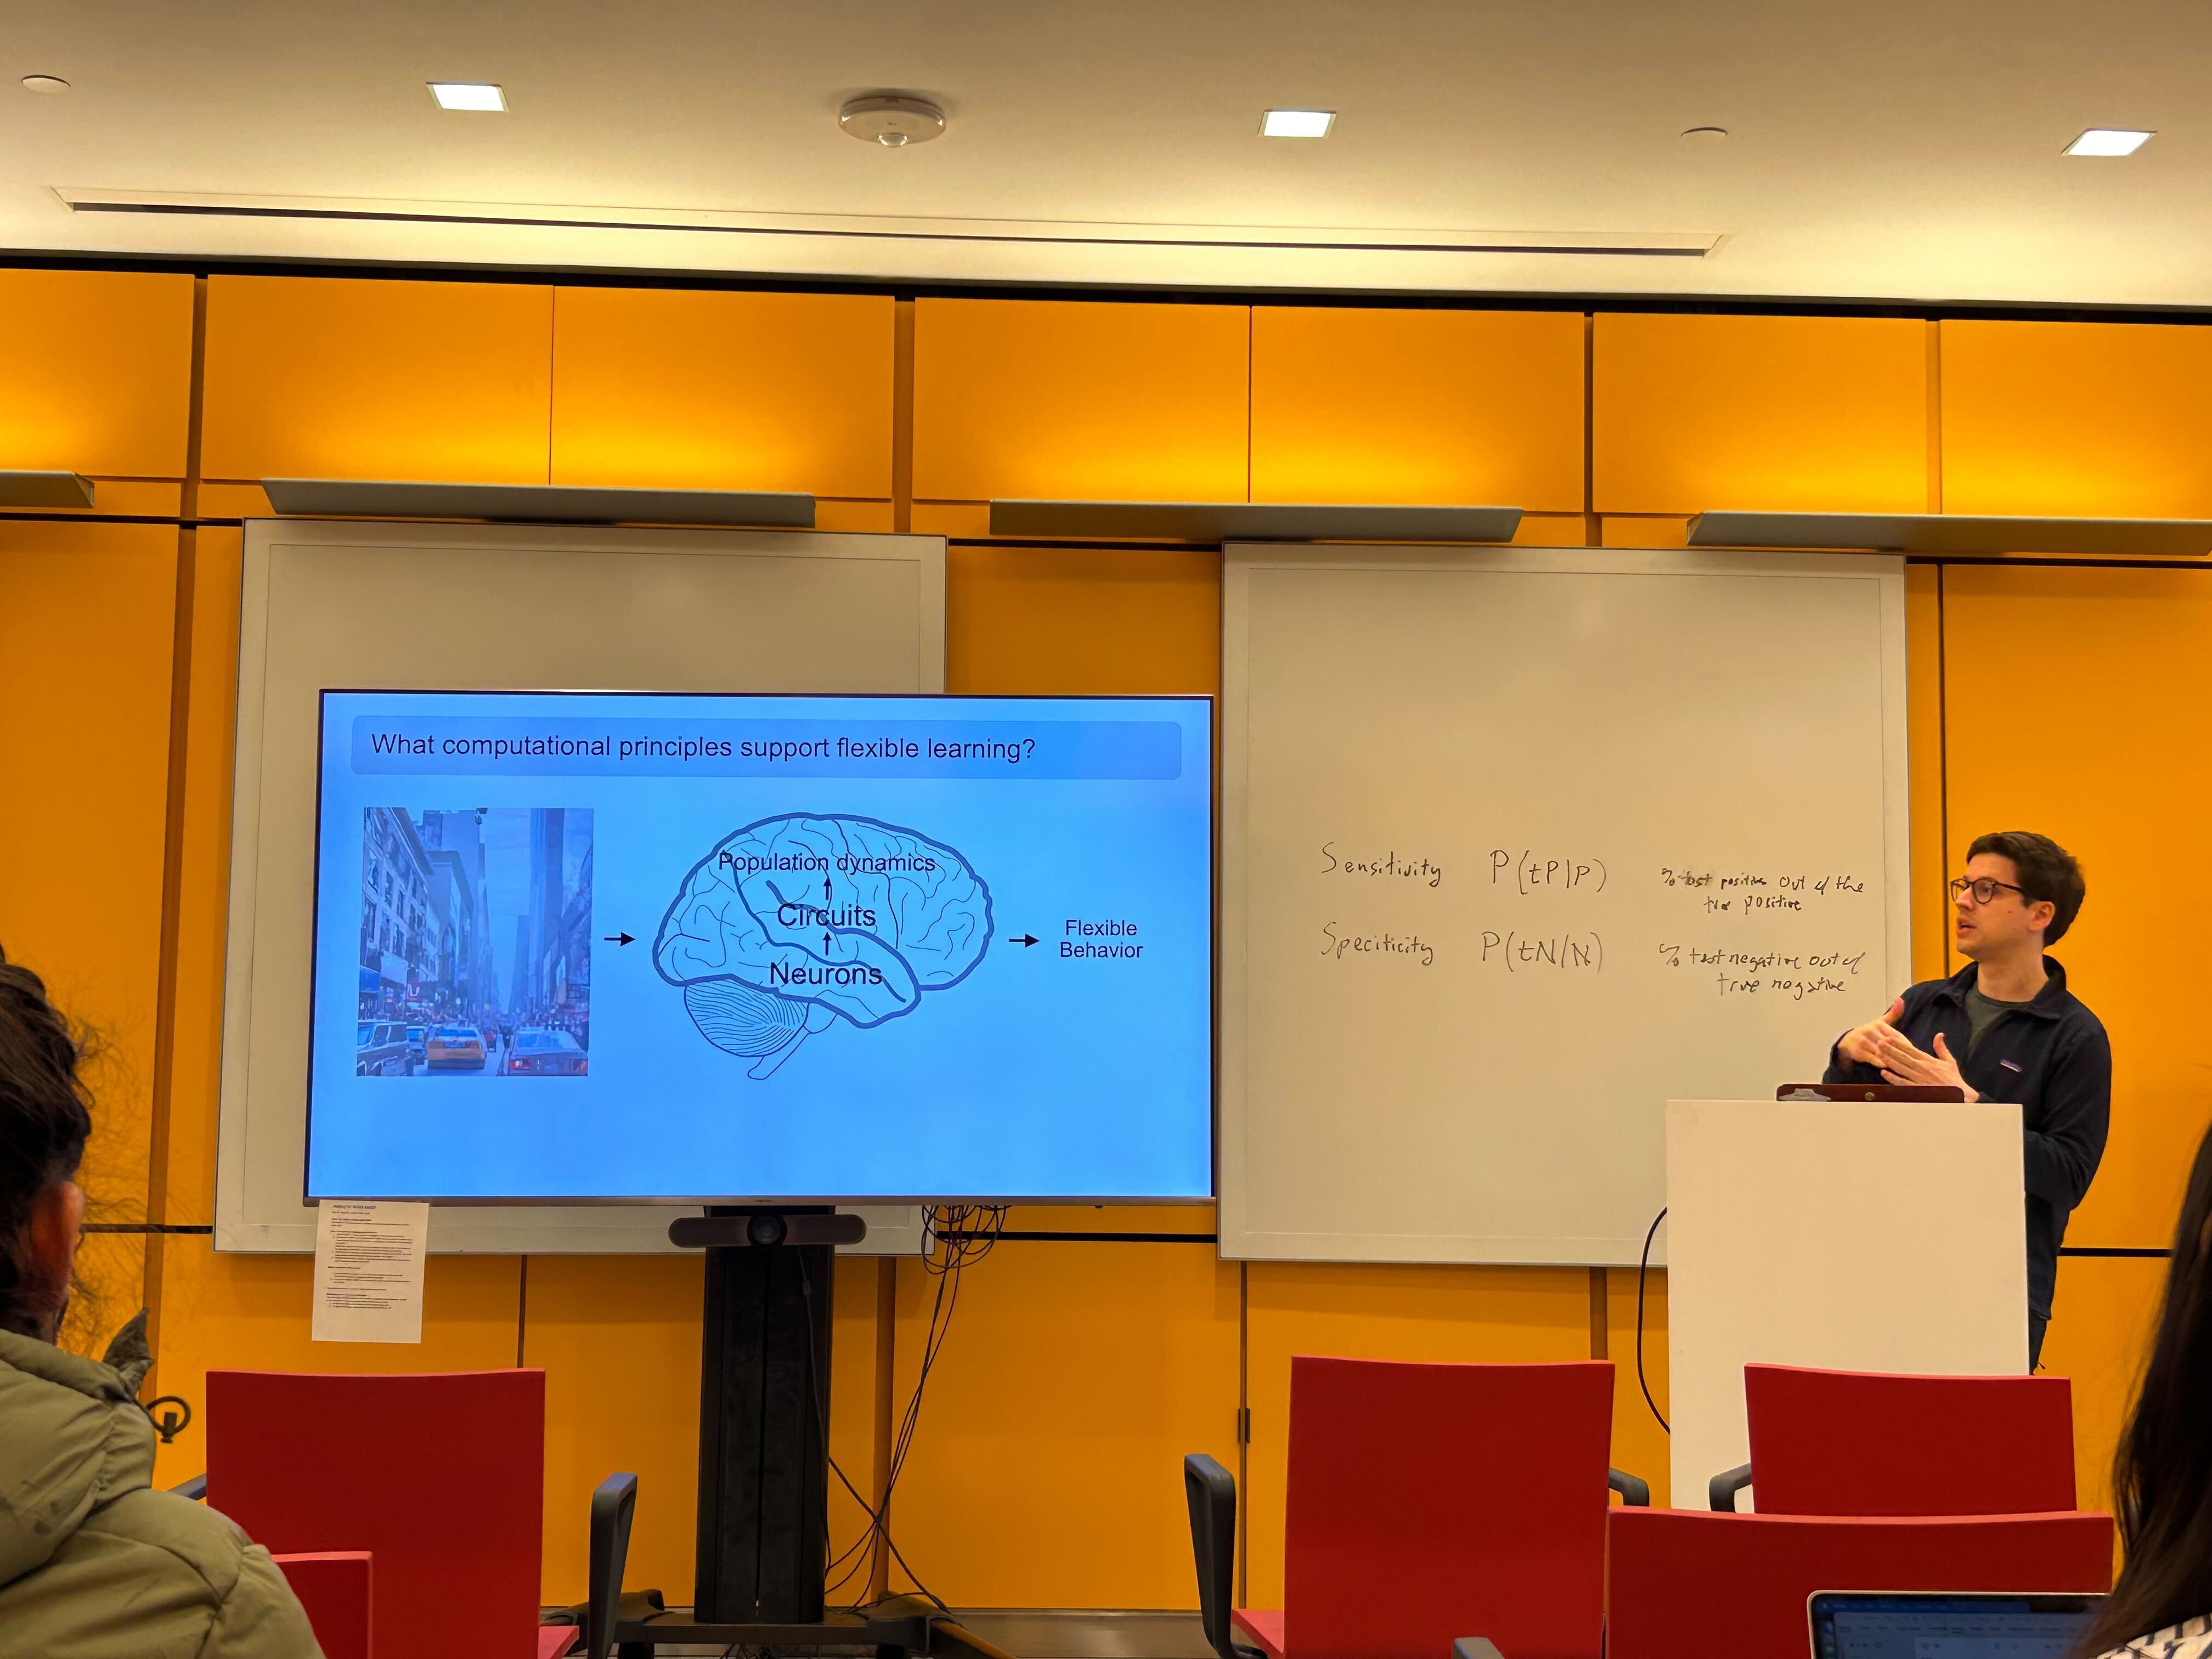 What computational principles support flexible learning?
Population dynamics
Circuits
Neurons
Flexible
Behavior
Sensitivity P(tP|P) % test positive out of the
true positive
Specificity P(tN|N) % test negative out of
true negative